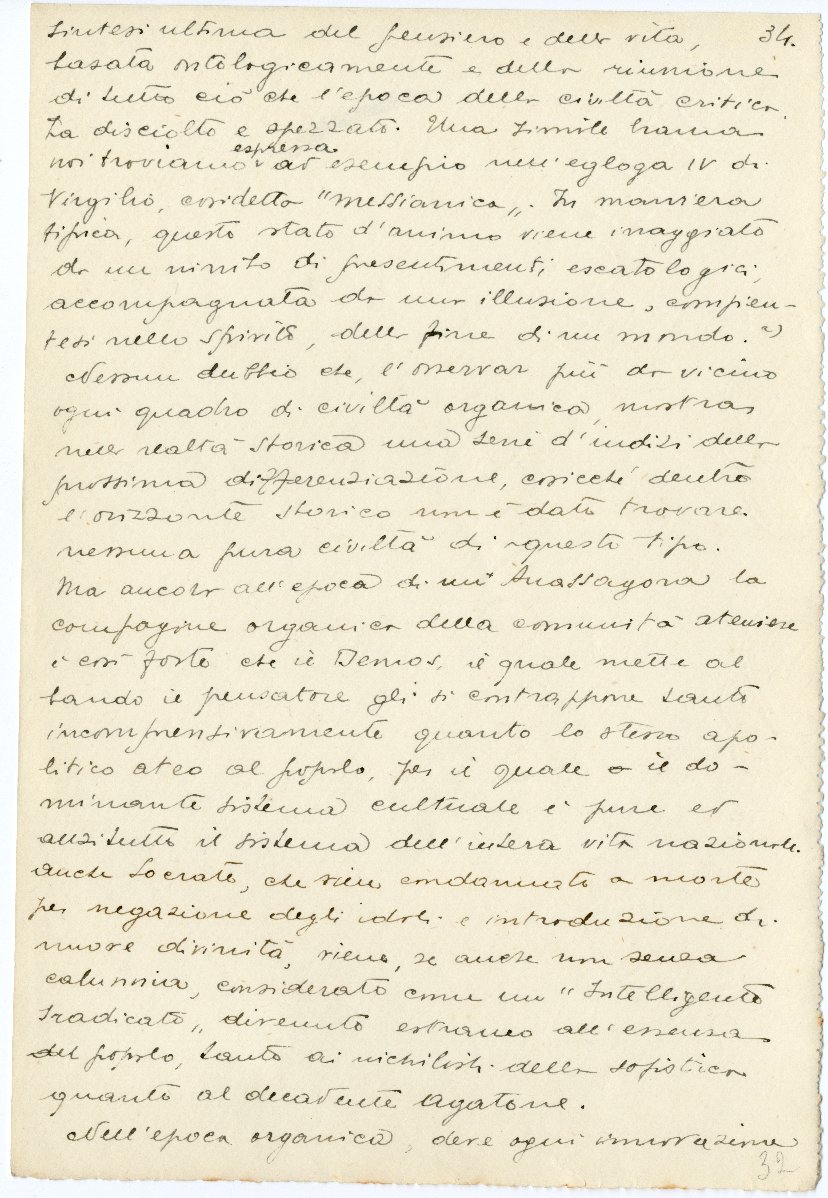 34.
sintesi ultima del pensiero e della vita,
basata ontologicamente e della riunione
di tutto ciò che l'epoca della civiltà critica
ha disciolto e spezzato. Una simile brama
espressa
noi troviamo ad esempio nell'egloga IV di
Virgilio, cosidetta "messianica„. In maniera
tipica, questo stato d'animo viene
da un di presentimenti escatologici,
accompagnata da una illusione, compien-
tesi nello spirito, della fine di un mondo. 2)
Nessun dubbio che, l'osservar più da vicino
ogni quadro di civiltà organica, mostra
nella realtà storica una serie d'indizi della
prossima differenziazione, cosicché dentro
l'orizzonte storico non è dato trovare
nessuna pura civiltà di questo tipo.
Ma ancora all'epoca di un Anassagora la
compagine organica della comunità ateniese
è così forte che il Demos, il quale mette al
bando il pensatore gli si contrappone tanto
incomprensivamente quanto lo stesso apo-
litico ateo al popolo, per il quale il do-
minante sistema cultuale è pure ed
anzitutto il sistema dell'intera vita nazionale.
Anche Socrate, che vien condannato a morte
per negazione degli idoli e introduzione di
nuove divinità, viene, se anche non senza
calunnia, considerato come un "Intelligente
sradicato„ divenuto estraneo all'essenza
del popolo, tanto ai nichilisti della sofistica
quanto al decadente Agatone.
Nell'epoca organica, deve ogni innovazione
32